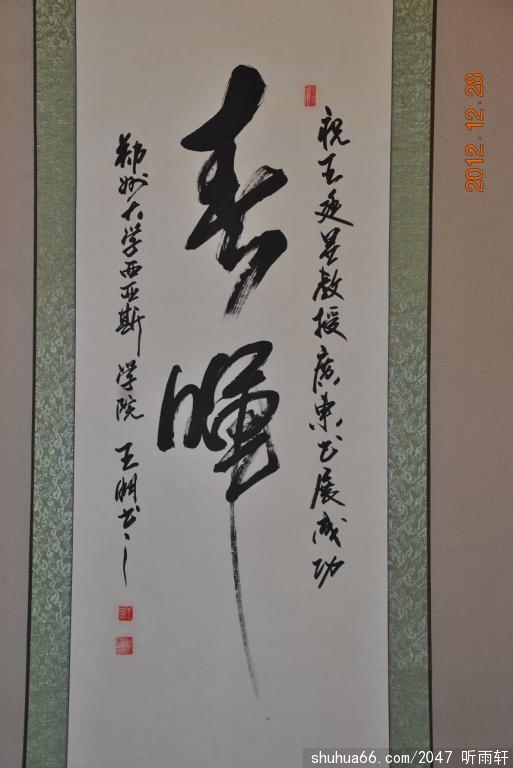 祝王延昱教授广东书展成功
春晖
郑州大学西亚斯学院王明书之
2012.12.28
shuhua66.com/2047 听雨轩